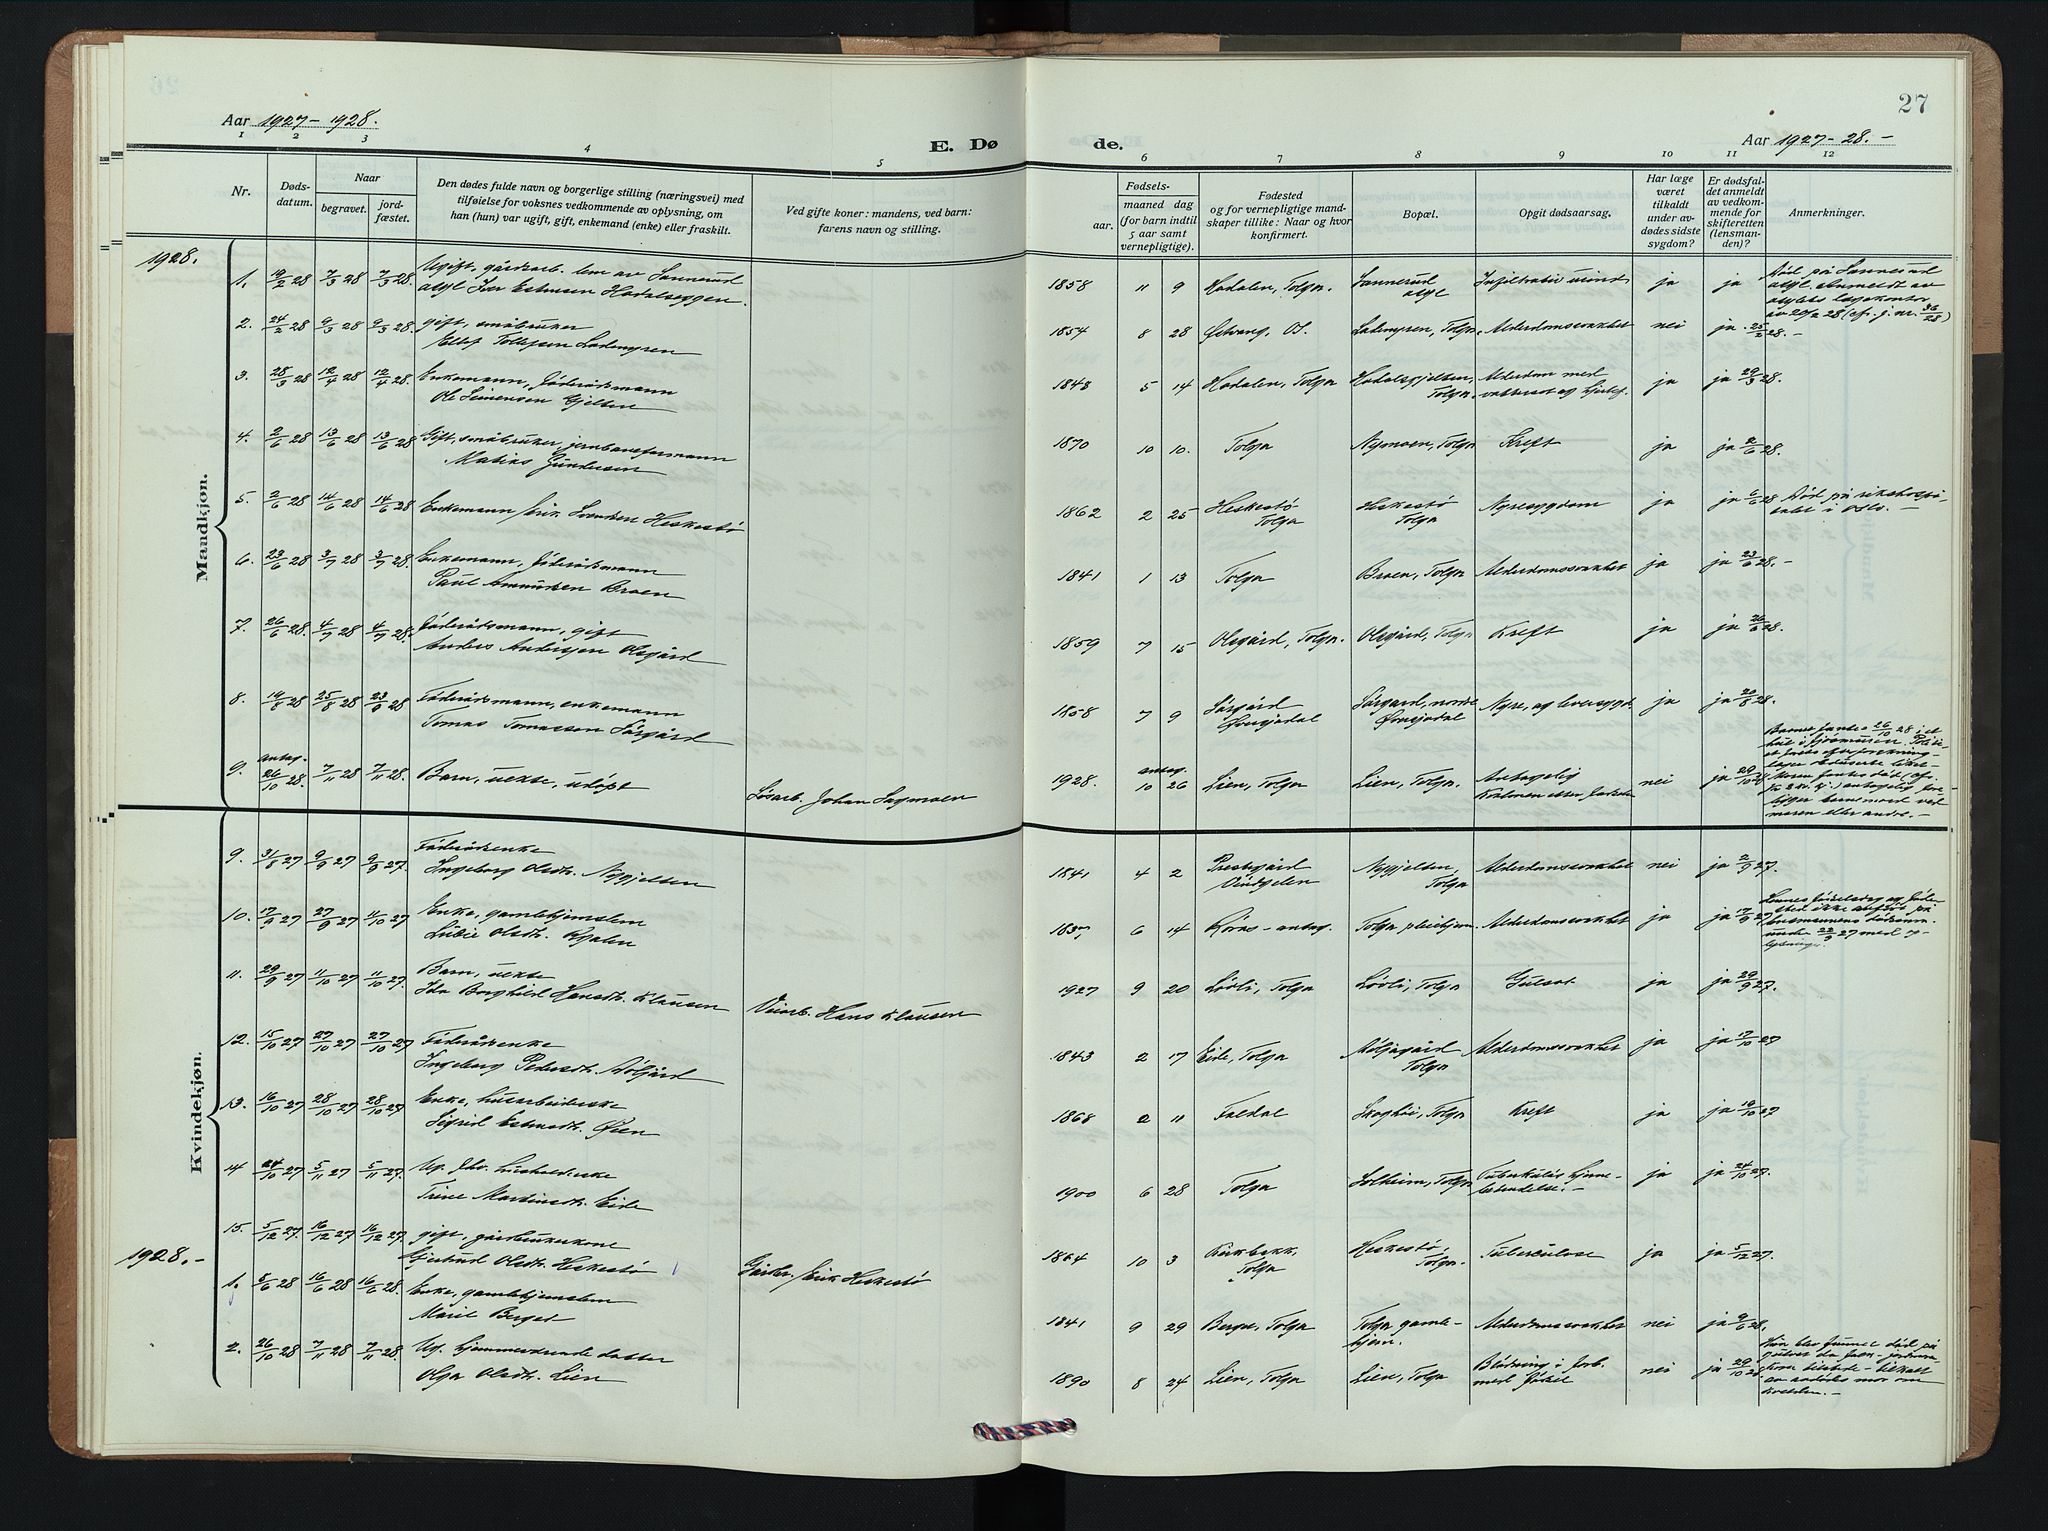 27
Aar 1927-1928.
E. Dø
de.
Aar 1927-28.-
1 2 3 4 5 6 7 8 9 10 11 12
Nr.
Døds-
datum.
Naar
begravet.
jord-
fæstet.
Den dødes fulde navn og borgerlige stilling (næringsvei) med
tilføielse for voksnes vedkommende av oplysning, om
han (hun) var ugift, gift, enkemand (enke) eller fraskilt.
Ved gifte koner: mandens, ved barn:
farens navn og stilling.
Fødsels-
aar.
maaned dag
(for barn indtil
5 aar samt
vernepligtige).
Fødested
og for vernepligtige mand-
skaper tillike: Naar og hvor
konfirmert.
Bopæl.
Opgit dødsaarsag.
Har læge
været
tilkaldt
under av-
dødes sidste
sygdom?
Er dødsfal-
det anmeldt
av vedkom-
mende for
skifteretten
(lensman-
den)?
Anmerkninger.
1928.
Mandkjøn.
1. 19/2 28 7/3 28 7/3 28. Ugift, gårdsarb. lem av Sannerud
asyl Iver Estensen Hodalseggen. 1858 11 9 Hodalen, Tolga. Sannerud
asyl ja ja
Død på Sannerud
asyl. Anmeldt av
2. 24/2 28 9/3 28 9/3 28. gift, småbruker
1854 8 28 Ladmyren, Tolga. Alderdomssvakhet nei ja 25/2 28.-
3. 28/3 28 12/4 28 12/4 28. Enkemann, føderådsmann
Ole Simensen Gjelten 1848 5 14 Hodalen, Tolga Hodalsgjelten,
Tolga. Alderdom med
ja ja 29/3 28.
4. 2/6 28 13/6 28 13/6 28 Gift, småbruker, jernbaneformann
Matias Gundersen 1870 10 10. Tolga Nymoen, Tolga Kreft ja ja 28.
5. 2/6 28 14/6 28 14/6 28 Enkemann Erik Svendsen Heskestø 1862 2 25 Heskestø
Tolga Heskestø
Tolga Nyresygdom ja ja 6/6 28 Død på rikshospi-
talet i Oslo. -
6. 23/6 28 3/7 28 3/7 28 Enkemann, føderådsmann
Paul Amundsen Broen 1841 1 13 Tolga Broen, Tolga Alderdomssvakhet ja ja 23/6 28.-
7. 26/6 28. 4/7 28 4/7 28. Føderådsmann, gift
Anders Andersen Olsgård 1859 7 15 Olsgård, Tolga. Olsgård, Tolga Kreft ja ja 26/6 28.
8. 19/8 28 25/8 28 23/9 28 Føderådsmann, enkemann
Tomas Tomassen Sørgård 1858 7 9 Sørgård
Øversjødal Sørgard, nordre
Øversjødal Nyre, og leversygd. ja ja 20/8 28.
9. antag.
26/10 28. 7/11 28 7/11 28. Barn, uekte, udøpt
Løsarb. Johan Sagmoen 1928. antag.
10 26 Lien, Tolga Lien, Tolga. Antagelig
nei ja 29/10 28
moren eller andre. -
Kvindekjøn.
9. 31/8 27 9/9 27 9/9 27. Føderådsenke
Ingeborg Olsdtr. Nygjelten 1841 4 2 Prestegård
Vingelen Nygjelten,
Tolga Alderdomssvakhet nei ja 2/9 27.
10. 17/9 27 27/9 27 11/10 27 Enke, gamlehjemslem
6 14 Røros - antag. Tolga pleiehjem Alderdomssvakhet ja ja 17/9 27
11. 29/9 27 11/10 27 11/10 27. Barn, uekte
Ida Borghild Hansdtr. Klausen Veiarb. Hans Klausen 1927 9 20 Løvli, Tolga Løvli, Tolga Gulsot ja ja 29/9 27.
12. 15/10 27 27/10 27 27/10 27 Føderådsenke
Ingeborg Pedersdtr. 1843 2 17 Eide, Tolga
Tolga Alderdomssvakhet ja ja 17/10 27
13. 16/10 27 28/10 27 28/10 27 Enke, husarbeiderske
Sigrid Estensdtr. Øien 1868 2 11 Faldal Skogbo, Tolga Kreft ja ja 19/10 27
14 24/10 27 5/11 27 5/11 27. Ug. fhv. husholderske
Trine Martinsdtr. Eide 1900 6 28 Tolga Solheim, Tolga Tuberkuløs hjinne-
betendelse. - ja ja 24/10 27.
15. 5/12 27. 16/12 27 16/12 27. gift, gårdbrukerkone
Gjertrud Olsdtr. Heskestø Gårdbr. Erik Heskestø 1864 10 3
Tolga Heskestø,
Tolga. Tuberkulose ja ja 5/12 27.
1928.-
1. 5/6 28 16/6 28 16/6 28. Enke, gamlehjemslem
Marit Berget 1841 9 29 Tolga gamle-
hjem. Alderdomssvakhet nei ja 9/6 28.
2. 26/10 28 7/11 28 7/11 28. Ug. hjemmeværende datter
Olga Olsdtr. Lien 1890 8 24 Lien, Tolga Lien, Tolga Blødning i forb.
med fødsel nei ja 29/10 28
Hun ble funnet død på